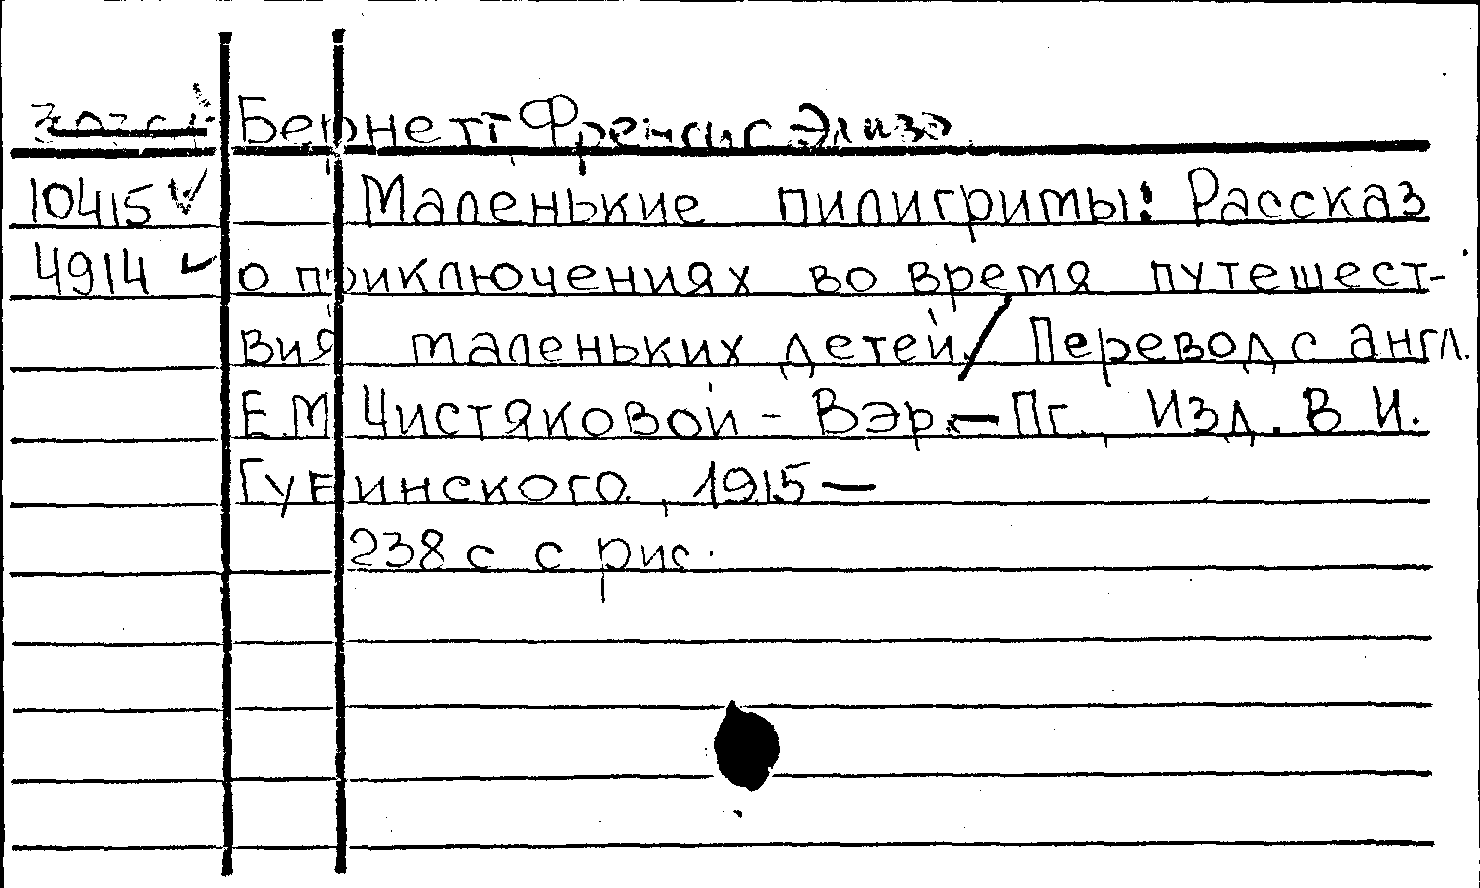 Бернетт Френсис Элиза
10415 ✓ Маленькие пилигримы: Рассказ
4914 ✓ о приключениях во время путешест-
вия маленьких детей / Перевод с англ.
Е.М Чистяковой - Вэр. — Пг., Изд. В И.
Губинского, 1915 —
238 с с рис.